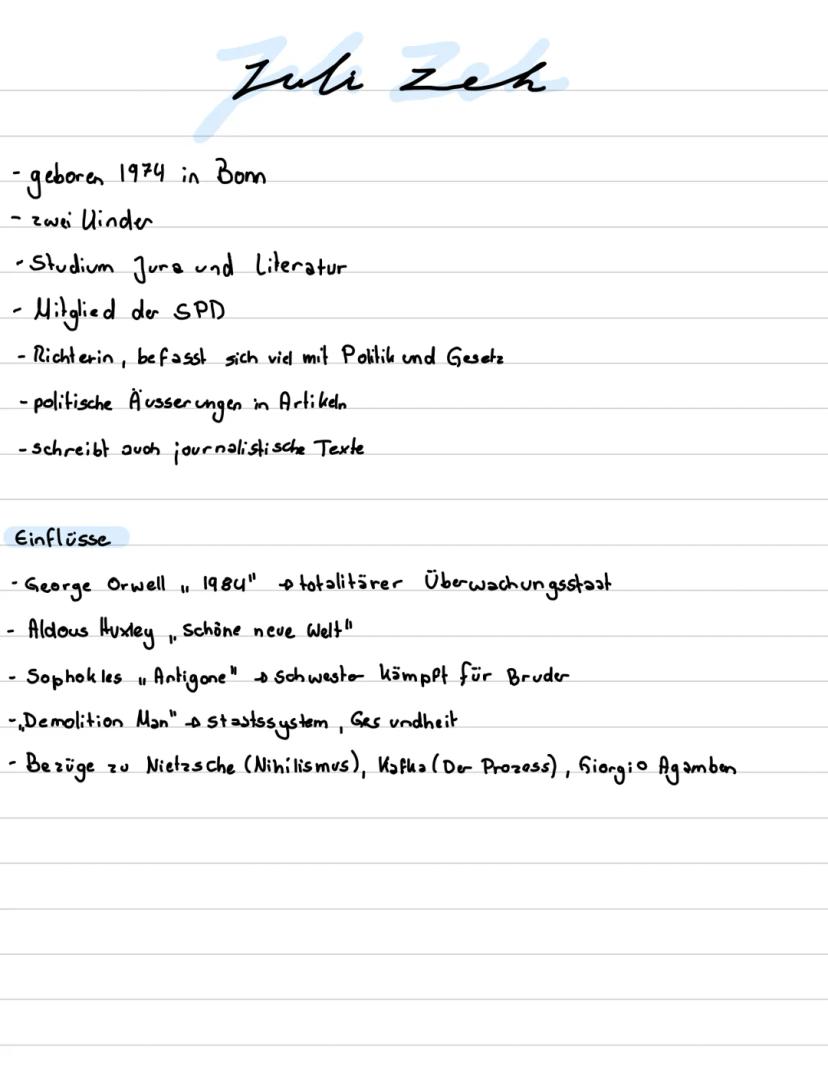 Juli Zeh
- geboren 1974 in Bonn
- zwei Kinder
- Studium Jura und Literatur
- Mitglied der SPD
- Richterin, befasst sich viel mit Politik und Gesetz
- politische Äusserungen in Artikeln
- schreibt auch journalistische Texte
Einflüsse
- George Orwell „1984" → totalitärer Überwachungsstaat
- Aldous Huxley „Schöne neue Welt"
- Sophokles „Antigone" → Schwester kämpft für Bruder
- „Demolition Man" → Staatssystem, Gesundheit
- Bezüge zu Nietzsche (Nihilismus), Kafka (Der Prozess), Giorgio Agamben